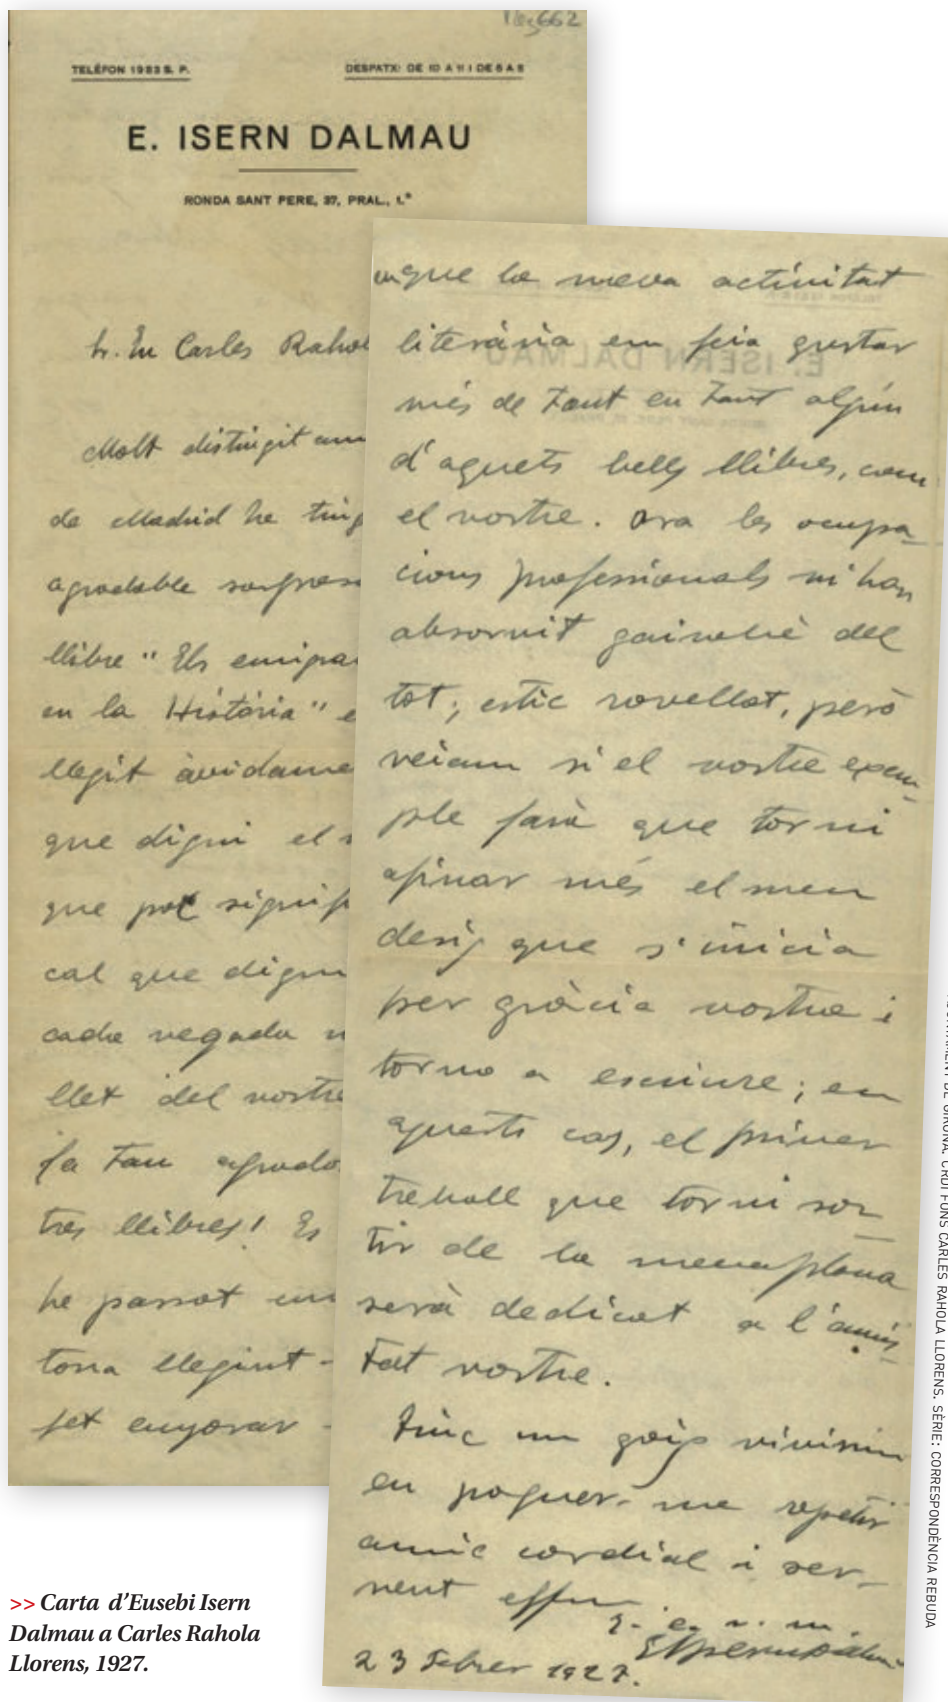 662
TELÈFON 1983 S. P.
DESPATX: DE 10 A 11 I DE 6 A 8
E. ISERN DALMAU
RONDA SANT PERE, 37, PRAL., 1.ª
Sr. En Carles Rahol
Molt distingit am
de Madrid he ting
agradable sorpres
llibre "Els emigra
en la Història" e
llegit àvidame
que digui el
que pot signif
cal que digui
cada vegada
llet del vostre
fa tan agrada
tres llibres! Es
he passat un
tona llegint-
fet enyorar -
que la meva activitat
literària em feia gustar
més de tant en tant algún
d'aquets bells llibres, com
el vostre. Ara les ocupa-
cions professionals m'han
absorvit gairebé del
tot; estic rovellat, però
veiam si el vostre exem-
ple farà que torni
afinar més el meu
desig que s'inicia
per gràcia vostre i
torno a escriure; en
aquets cas, el primer
treball que torni sor-
tir de la meva ploma
serà dedicat a l'amis-
tat vostre.
Tinc un goig vivíssim
en poguer-me repetir
amic cordial i ser-
vent
q. e. s. m.
E Isern Dalmau
23 Febrer 1927.
>> Carta d'Eusebi Isern
Dalmau a Carles Rahola
Llorens, 1927.
AJUNTAMENT DE GIRONA. CRDI FONS CARLES RAHOLA LLORENS. SÈRIE: CORRESPONDÈNCIA REBUDA